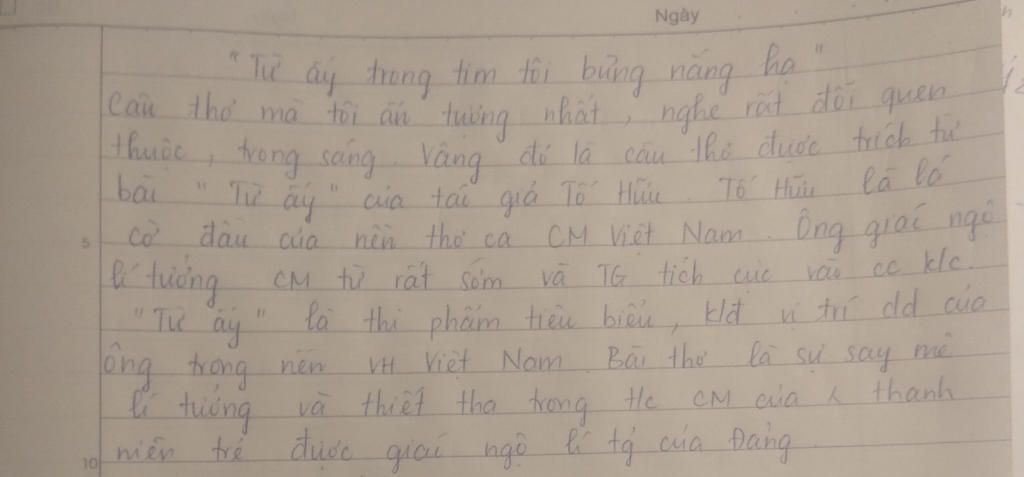 Ngày
"Từ ấy trong tim tôi bừng nắng hạ"
Câu thơ mà tôi ấn tượng nhất, nghe rất đỗi quen
thuộc, trong sáng. Vâng đó là câu thơ được trích từ
bài "Từ ấy" của tác giả Tố Hữu. Tố Hữu là lá
cờ đầu của nền thơ ca CM Việt Nam. Ông giác ngộ
5
lí tưởng CM từ rất sớm và TG tích cực vào cc k/c.
"Từ ấy" là thi phẩm tiêu biểu, k/đ vị trí dd của
ông trong nền VH Việt Nam. Bài thơ là sự say mê
lí tưởng và thiết tha trong t/c CM của thanh
niên trẻ được giác ngộ lí tg của Đảng.
10